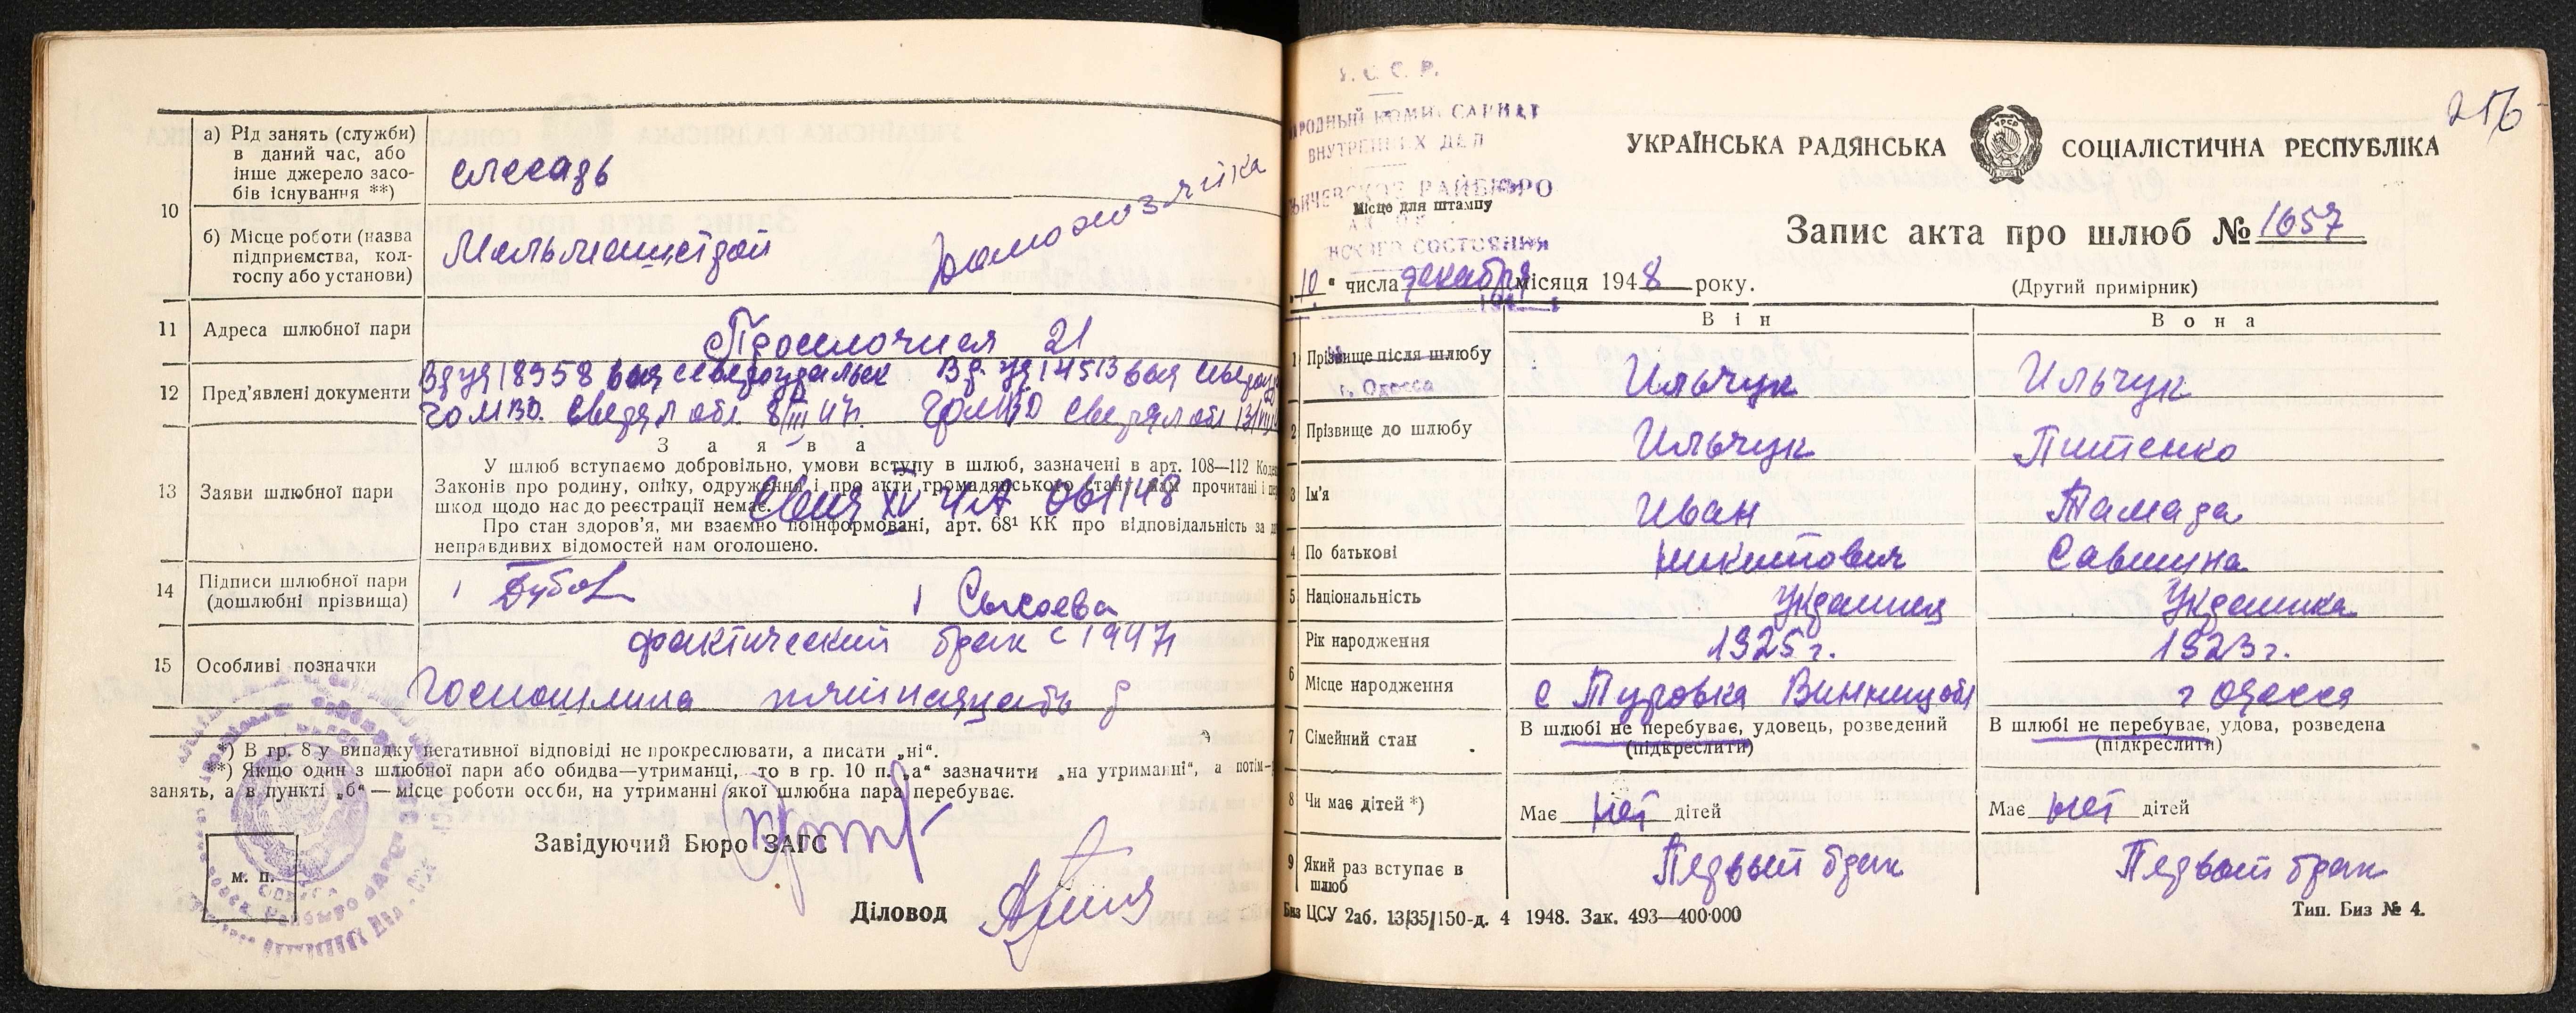 а) Рід занять (служби)
в даний час, або
інше джерело засо-
бів існування **)
слесарь
10
б) Місце роботи (назва
підприємства, кол-
госпу або установи)
Домохозяйка
11 Адреса шлюбної пари
Проселочная 21
12 Пред'явлені документи
18958 выд Североуральск 14513 выд
ГОМВД Свердл обл. 8/III 47г. ГОМВД Свердл обл 13/VII
13 Заяви шлюбної пари
З а я в а
У шлюб вступаємо добровільно, умови вступу в шлюб, зазначені в арт. 108—112
Законів про родину, опіку, одруження і про акти громадянського стану нам прочитані і
шкод щодо нас до реєстрації немає.
061148
Про стан здоров'я, ми взаємно поінформовані, арт. 68¹ КК про відповідальність за
неправдивих відомостей нам оголошено.
14 Підписи шлюбної пари
(дошлюбні прізвища)
Сысоева
15 Особливі позначки
фактический брак с 1947г
Госпошлина пятнадцать р
*) В гр. 8 у випадку негативної відповіді не прокреслювати, а писати „ні“.
**) Якщо один з шлюбної пари або обидва—утриманці, то в гр. 10 п. „а“ зазначити „на утриманні“, а потім—
занять, а в пункті „б“ — місце роботи особи, на утриманні якої шлюбна пара перебуває.
Завідуючий Бюро ЗАГС
м. п.
Діловод
216
У. С. С. Р.
НАРОДНЫЙ КОМИССАРИАТ
ВНУТРЕННИХ ДЕЛ
РАЙБЮРО
СОСТОЯНИЯ
г. Одесса
Місце для штампу
УКРАЇНСЬКА РАДЯНСЬКА СОЦІАЛІСТИЧНА РЕСПУБЛІКА
Запис акта про шлюб № 1657
„10“ числа декабря місяця 1948 року.
(Другий примірник)
Він Вона
1 Прізвище після шлюбу Ильчук Ильчук
2 Прізвище до шлюбу Ильчук Питенко
3 Ім'я Иван Тамара
4 По батькові Никитович Саввична
5 Національність Украинец Украинка
6 Рік народження 1925 г. 1923 г.
Місце народження с Туровка Винницобл г Одесса
7 Сімейний стан
В шлюбі не перебуває, удовець, розведений
(підкреслити)
В шлюбі не перебуває, удова, розведена
(підкреслити)
8 Чи має дітей *) Має нет дітей Має нет дітей
9 Який раз вступає в
шлюб
Первый брак Первый брак
Биз ЦСУ 2аб. 13/35/150-д. 4 1948. Зак. 493—400·000
Тип. Биз № 4.